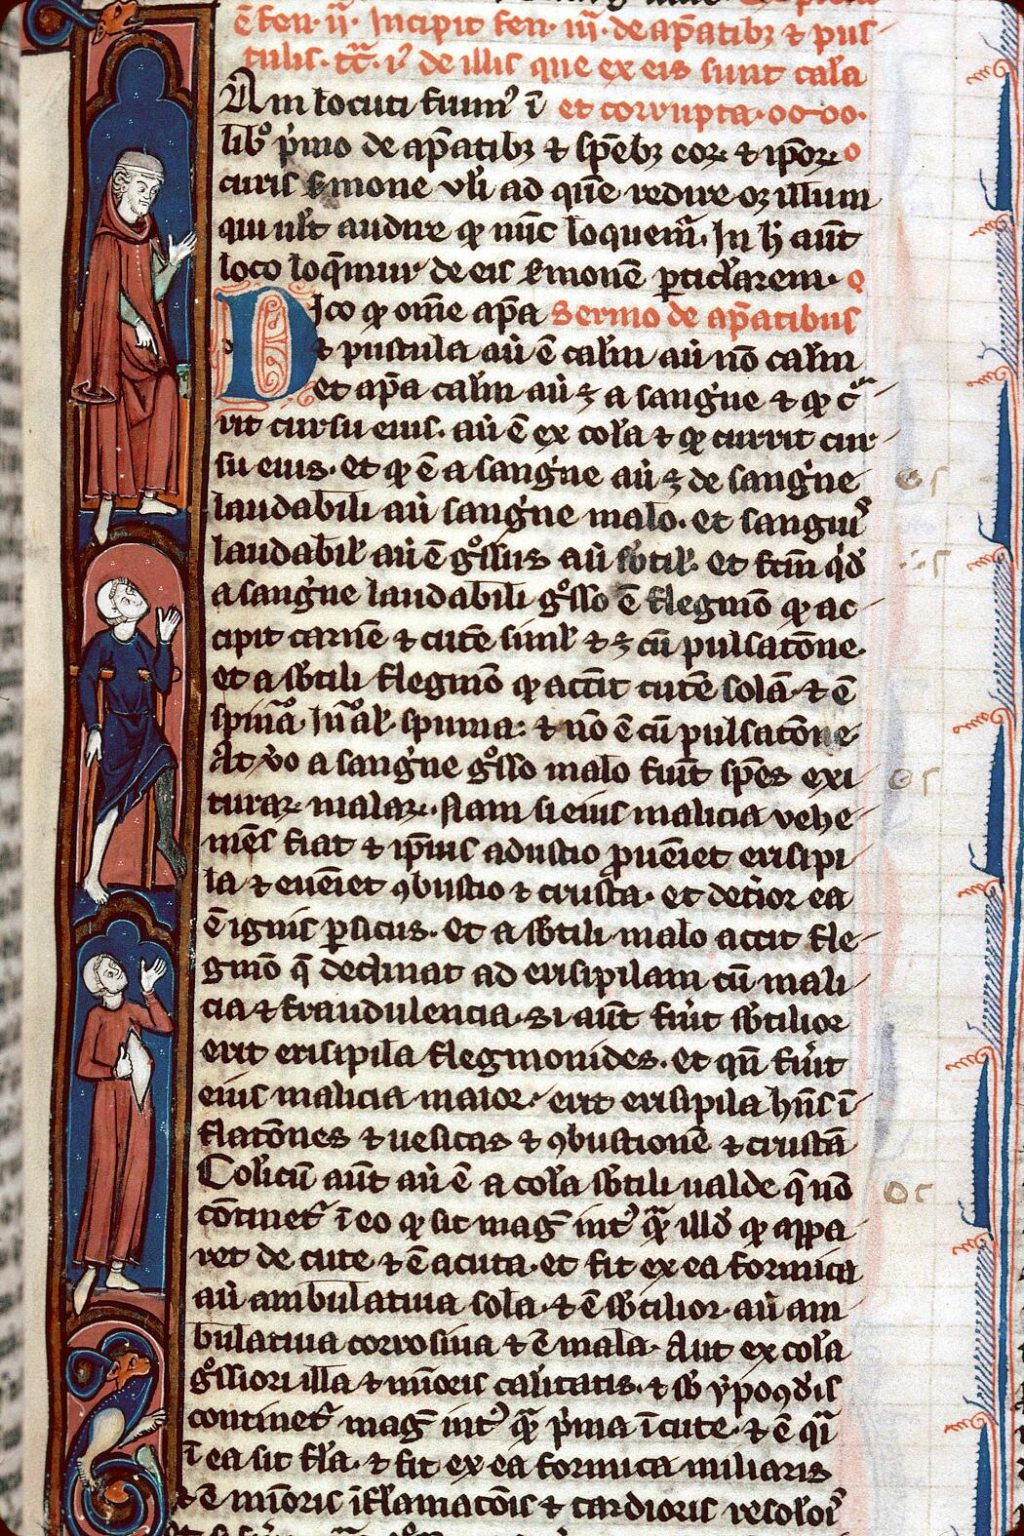 e fen. ii. Incipit fen. iii. de apatibꝫ & pus
tulis. tc. i. de illis que ex eis sunt cala
Am locuti fuimꝰ i et corrupta.
libo pimo de apatibꝫ & spebꝫ eoꝝ & ipoꝝ
curis smone vli ad quē redire oꝫ illum
qui uult audire qd nūc loquemur. In h aūt
loco loqmur de eis smonē pticlarem.
Dico qd omē apa Sermo de apatibus
& pustula aū ē calm aū nō calm
et apa calm aū ÷ a sangue & qd c
rit cursu eius. aū ē ex cola & qd currit cur
su eius. et qd ē a sangne aū ÷ de sangne
laudabili aū sangne malo. et sanguis
laudabil aū ē gossus aū sbtil. et ftm qd
a sangne laudabili gosso ē flegmō qd ac
cipit carnē & cutē simul & ÷ cū pulsatōne.
et a sbtili flegmō qd accit cutē solā. & ē
spinosa. spuma: & nō ē cū pulsatōne
At vo a sangne gosso malo fiut spēs exi
turaꝝ malaꝝ. Nam si eius malicia vehe
mēs fiat & ipius adustio pueniet erisipi
la & eueniet ꝯbustio & crusta. et detior ea
ē ignis psicus. Et a sbtili malo accit fle
gmō q declinat ad erisipilam cū mali
cia & fraudulencia. si aūt fuit sbtilior
erit erisipila flegmonides. et qn fuit
eius malicia maior. erit erisipila hns i
flatōnes & uesicas & ꝯbustionē & crustā
Colicū aūt aū ē a cola sbtili ualde q nō
cōtinetr i eo qd sit mag intꝰ qm illd qd appa
ret de cute & ē acuta. et fit ex ea formica
aū ambulatiua sola. & ē sbtilior. aū am
bulatiua corrosiua & ē mala. Aut ex cola
gossiori illa & minoris calitatis. & sb ypoꝯdis
continetr mag intꝰ qm pima i cute. & ē qi
i ea sit fla. & fit ex ea formica miliaris
& ē minoris iflamacōis & tardioris resoloīs